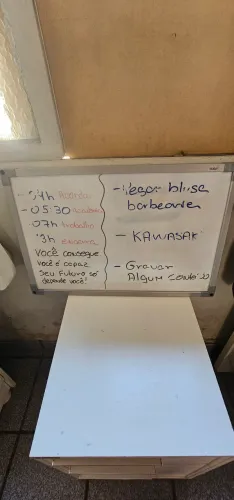 - 04h Acordar
- 05:30 academia
- 07h trabalho
13h
Você consegue
você é capaz
Seu futuro só
depende você!
- Pegar blusa
barbearia
- KAWASAKI
- Gravar
Algum conteúdo